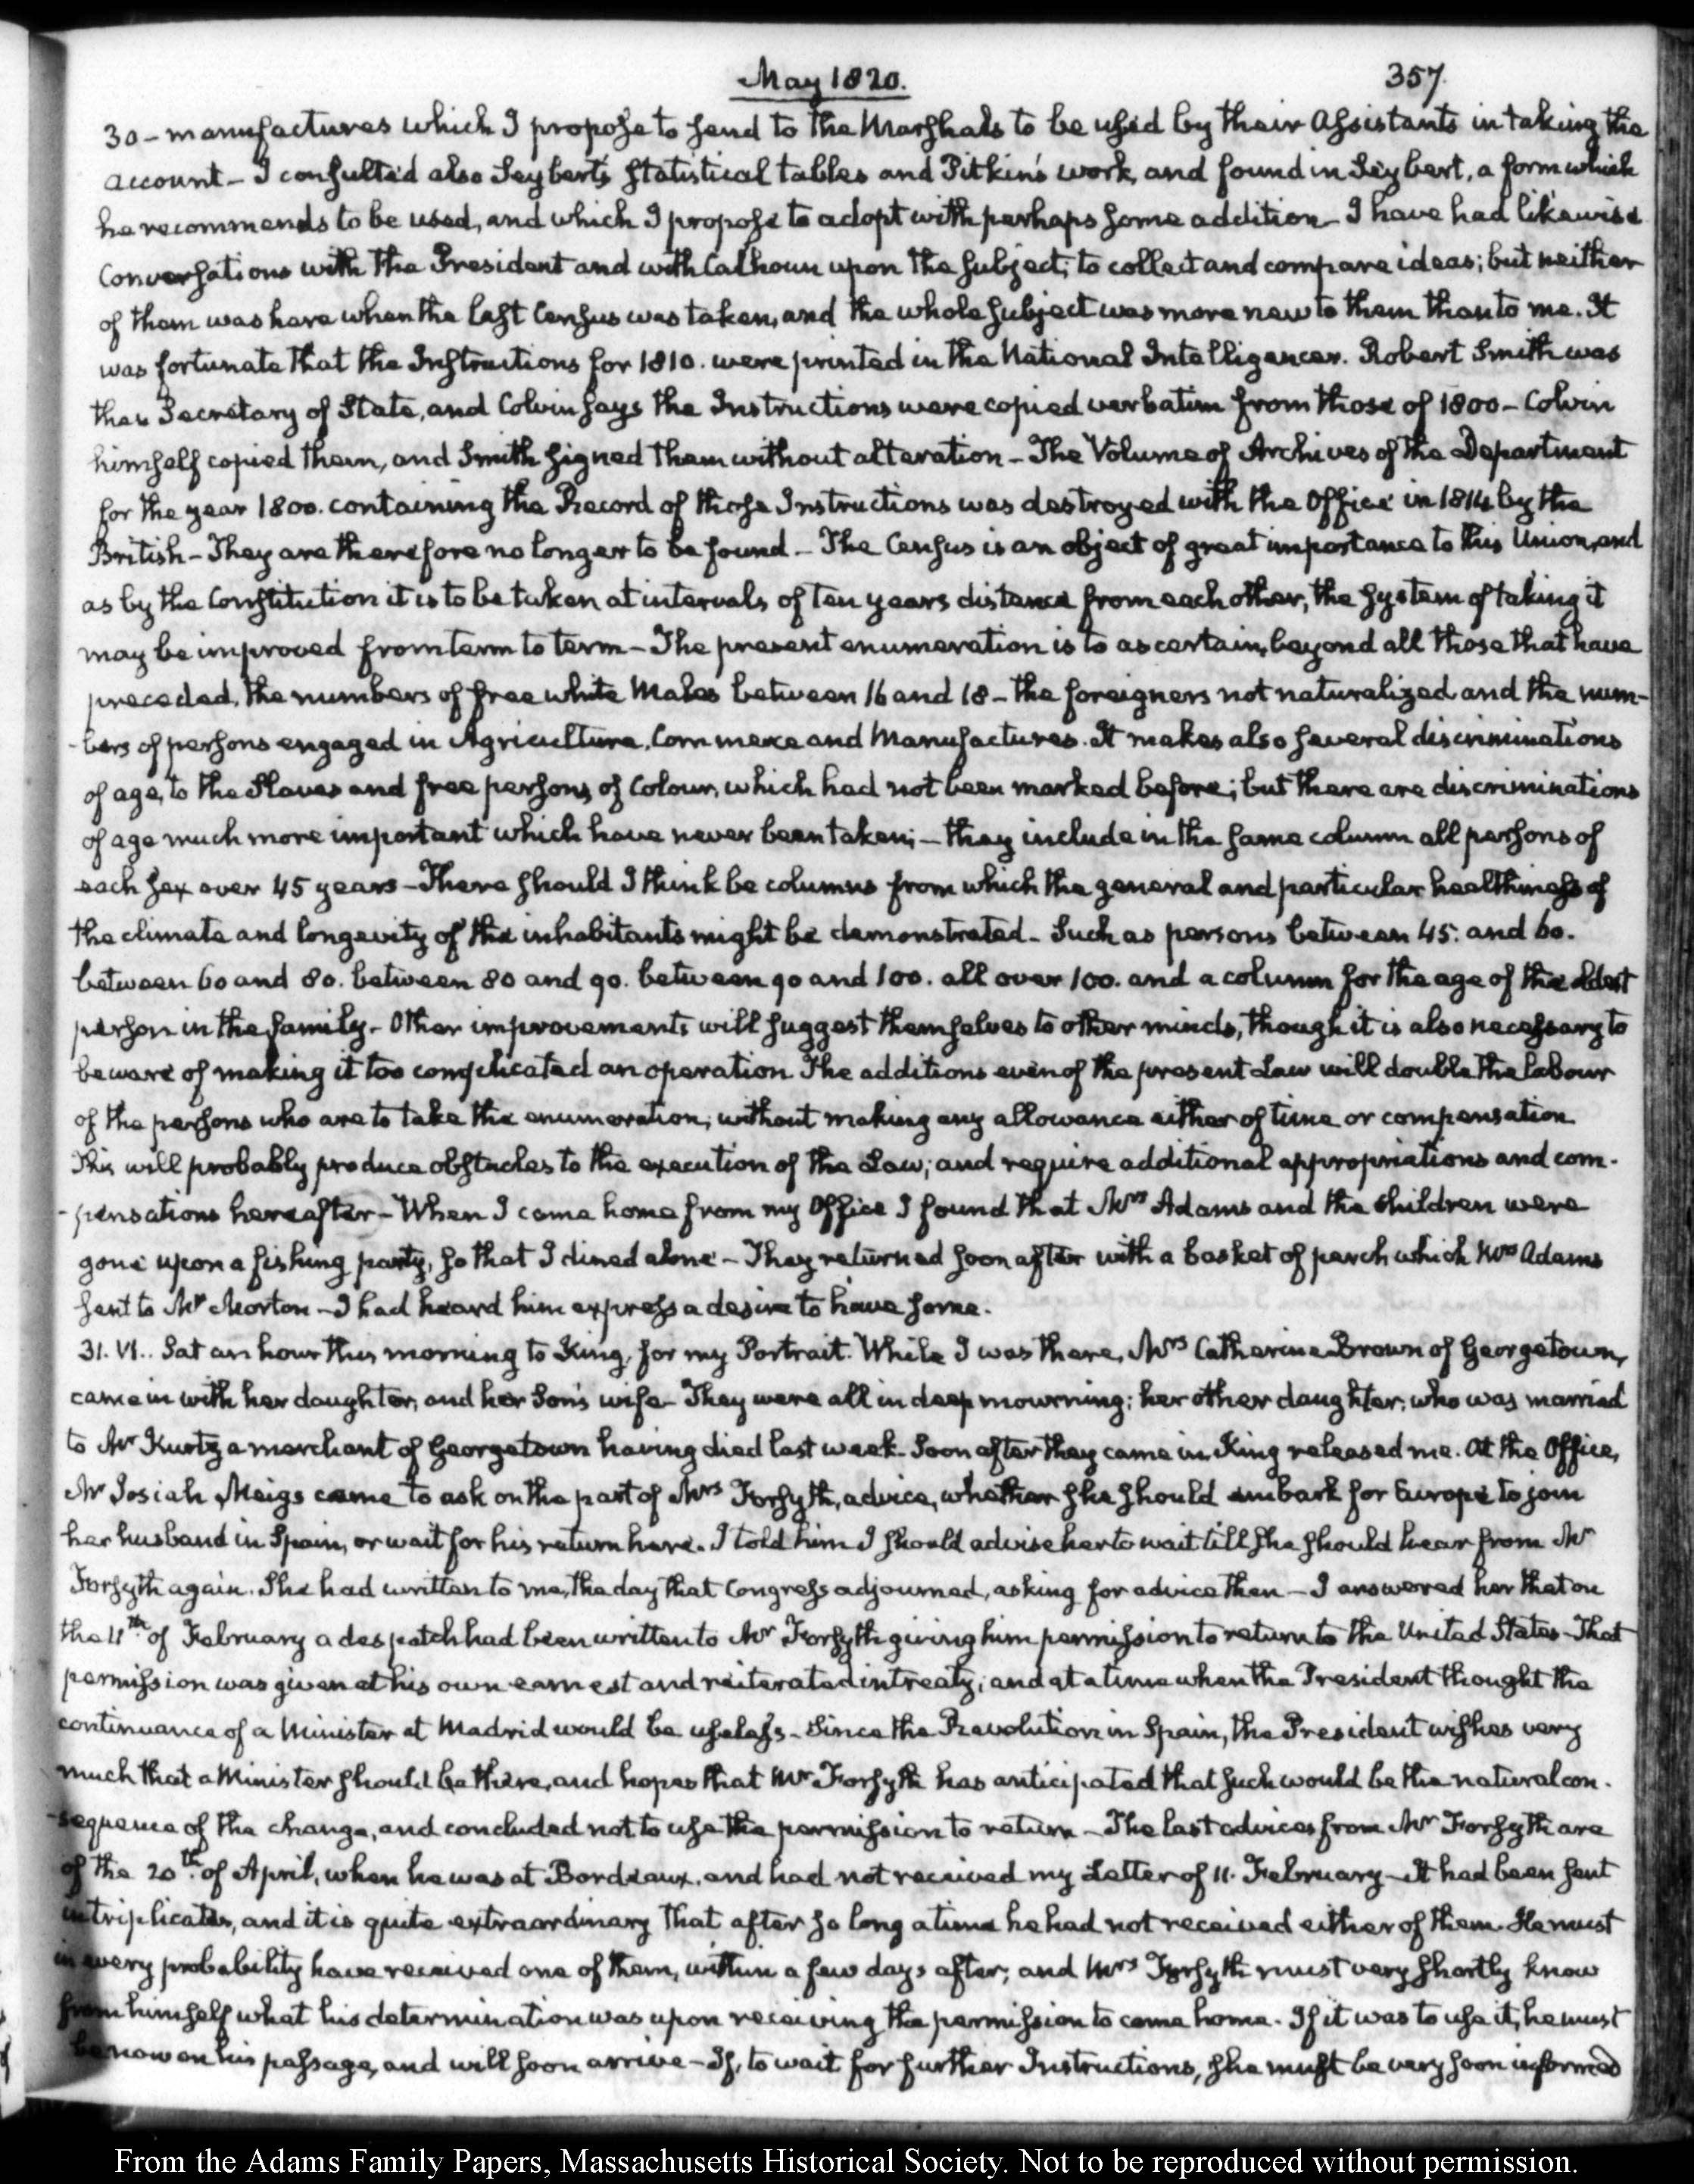 May 1820.
357.
30 - manufactures which I propose to send to the Marshals to be used by their Assistants in taking the
account - I consulted also Seybert's Statistical tables and Pitkin's work, and found in Seybert, a form which
he recommends to be used, and which I propose to adopt with perhaps some addition - I have had likewise
Conversations with the President and with Calhoun upon the subject, to collect and compare ideas; but neither
of them was here when the last Census was taken, and the whole subject was more new to them than to me. It
was fortunate that the Instructions for 1810. were printed in the National Intelligencer. Robert Smith was
then Secretary of State, and Colvin says the Instructions were copied verbatim from those of 1800 - Colvin
himself copied them, and Smith signed them without alteration - The Volume of Archives of the Department
for the year 1800. containing the Record of those Instructions was destroyed with the Office in 1814 by the
British - They are therefore no longer to be found - The Census is an object of great importance to this Union, and
as by the Constitution it is to be taken at intervals of ten years distance from each other, the system of taking it
may be improved from term to term - The present enumeration is to ascertain, beyond all those that have
preceded, the numbers of free white Males between 16 and 18 - the foreigners not naturalized and the num-
-bers of persons engaged in Agriculture, Commerce and Manufactures. It makes also several discriminations
of age, to the Slaves and free persons of Colour, which had not been marked before; but there are discriminations
of age much more important which have never been taken; - they include in the same column all persons of
each sex over 45 years - There should I think be columns from which the general and particular healthiness of
the climate and longevity of the inhabitants might be demonstrated - Such as persons between 45. and 60.
between 60 and 80. between 80 and 90. between 90 and 100. all over 100. and a column for the age of the oldest
person in the family - Other improvements will suggest themselves to other minds, though it is also necessary to
beware of making it too complicated an operation The additions even of the present Law will double the labour
of the persons who are to take the enumeration, without making any allowance either of time or compensation
This will probably produce obstacles to the execution of the Law; and require additional appropriations and com-
-pensations hereafter - When I came home from my Office I found that Mrs Adams and the children were
gone upon a fishing party, so that I dined alone - They returned soon after with a basket of perch which Mrs Adams
sent to Mr Morton - I had heard him express a desire to have some.
31. VI.. Sat an hour this morning to King, for my Portrait. While I was there, Mrs Catherine Brown of Georgetown,
came in with her daughter, and her Son's wife - They were all in deep mourning; her other daughter, who was married
to Mr Kurtz a merchant of Georgetown having died last week. Soon after they came in, King released me. At the Office,
Mr Josiah Meigs came to ask on the part of Mrs Forsyth, advice, whether she should embark for Europe to join
her husband in Spain, or wait for his return here. I told him I should advise her to wait till she should hear from Mr
Forsyth again. She had written to me, the day that Congress adjourned, asking for advice then - I answered her that on
the 11th. of February a despatch had been written to Mr Forsyth giving him permission to return to the United States - That
permission was given at his own earnest and reiterated intreaty, and at a time when the President thought the
continuance of a Minister at Madrid would be useless - Since the Revolution in Spain, the President wishes very
much that a Minister should be there, and hopes that Mr Forsyth has anticipated that such would be the natural con-
-sequence of the change, and concluded not to use the permission to return - The last advices from Mr Forsyth are
of the 20th. of April, when he was at Bordeaux, and had not received my Letter of 11. February - It had been sent
in triplicates, and it is quite extraordinary that after so long a time he had not received either of them. He must
in every probability have received one of them, within a few days after; and Mrs Forsyth must very shortly know
from himself what his determination was upon receiving the permission to come home. If it was to use it, he must
be now on his passage, and will soon arrive - If, to wait for further Instructions, she must be very soon informed
From the Adams Family Papers, Massachusetts Historical Society. Not to be reproduced without permission.